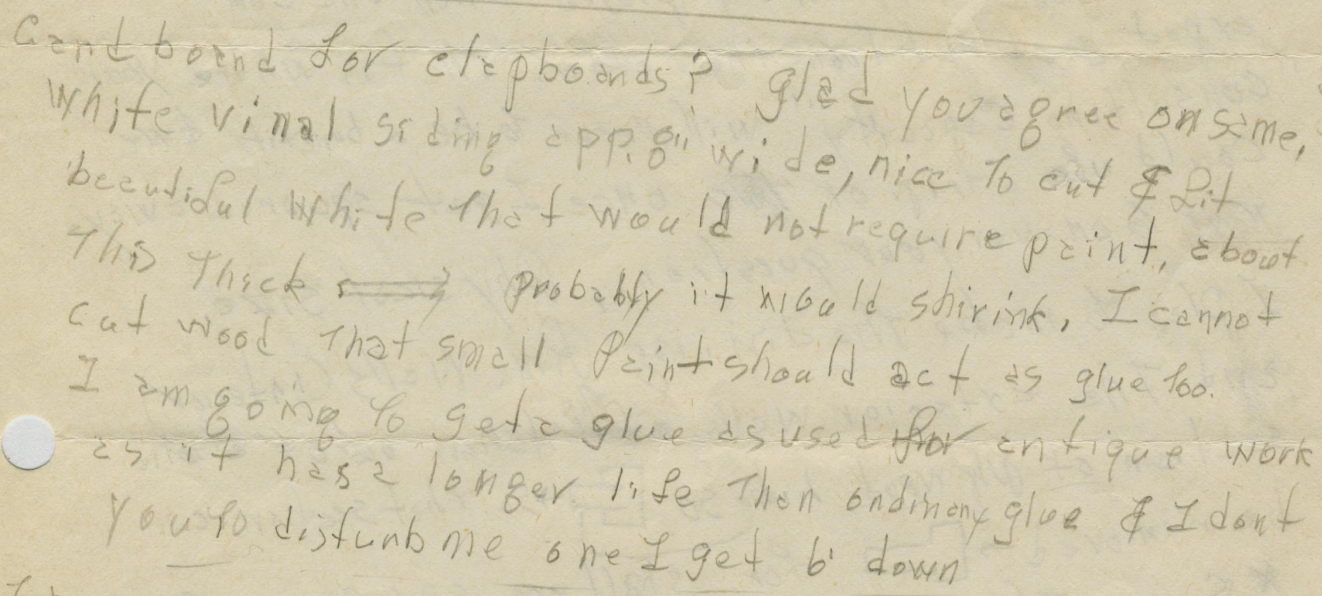 Cardboard for clapboards? glad you agree on same,
White vinal siding app. 8" wide, nice to cut & fit
beautiful white that would not require paint, about
This Thick Probably it would shirink, I cannot
cut wood That small Paint should act as glue too.
I am going to get a glue as used for antique work
as it has a longer life Than ordinary glue & I dont
You to disturb me one I get b' down